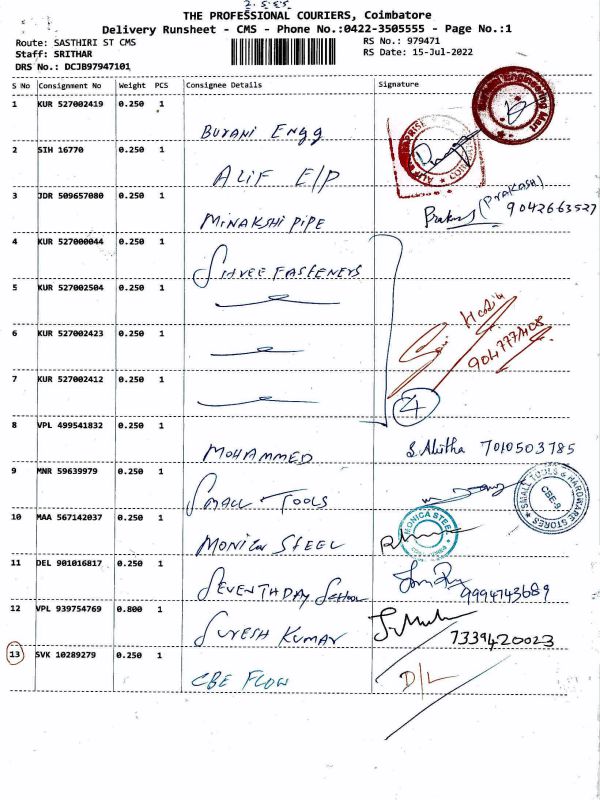 THE PROFESSIONAL COURIERS, Coimbatore
Delivery Runsheet - CMS - Phone No.:0422-3505555 - Page No.:1
Route: SASTHIRI ST CMS
RS No.: 979471
Staff: SRITHAR
RS Date: 15-Jul-2022
DRS No.: DCJB97947101
S No Consignment No Weight PCS Consignee Details Signature
1 KUR 527002419 0.250 1 BURANI ENGG
2 SIH 16770 0.250 1 ALIF E/P
3 JDR 509657080 0.250 1 MINAKSHI PIPE (PRAKASH) 9042663527
4 KUR 527000044 0.250 1 SHREE FASTENERS
5 KUR 527002504 0.250 1
6 KUR 527002423 0.250 1
7 KUR 527002412 0.250 1
4
8 VPL 499541832 0.250 1 MOHAMMED 7010503785
9 MNR 59639979 0.250 1 SMALL TOOLS
SMALL TOOLS & HARDWARE STORES
CBE-9
10 MAA 567142037 0.250 1 MONICA STEEL
MONICA STEEL
11 DEL 901016817 0.250 1 SEVENTHDAY School 9994743689
12 VPL 939754769 0.800 1 SURESH KUMAR 7339420023
13 SVK 10289279 0.250 1 CBE FLOW D/L